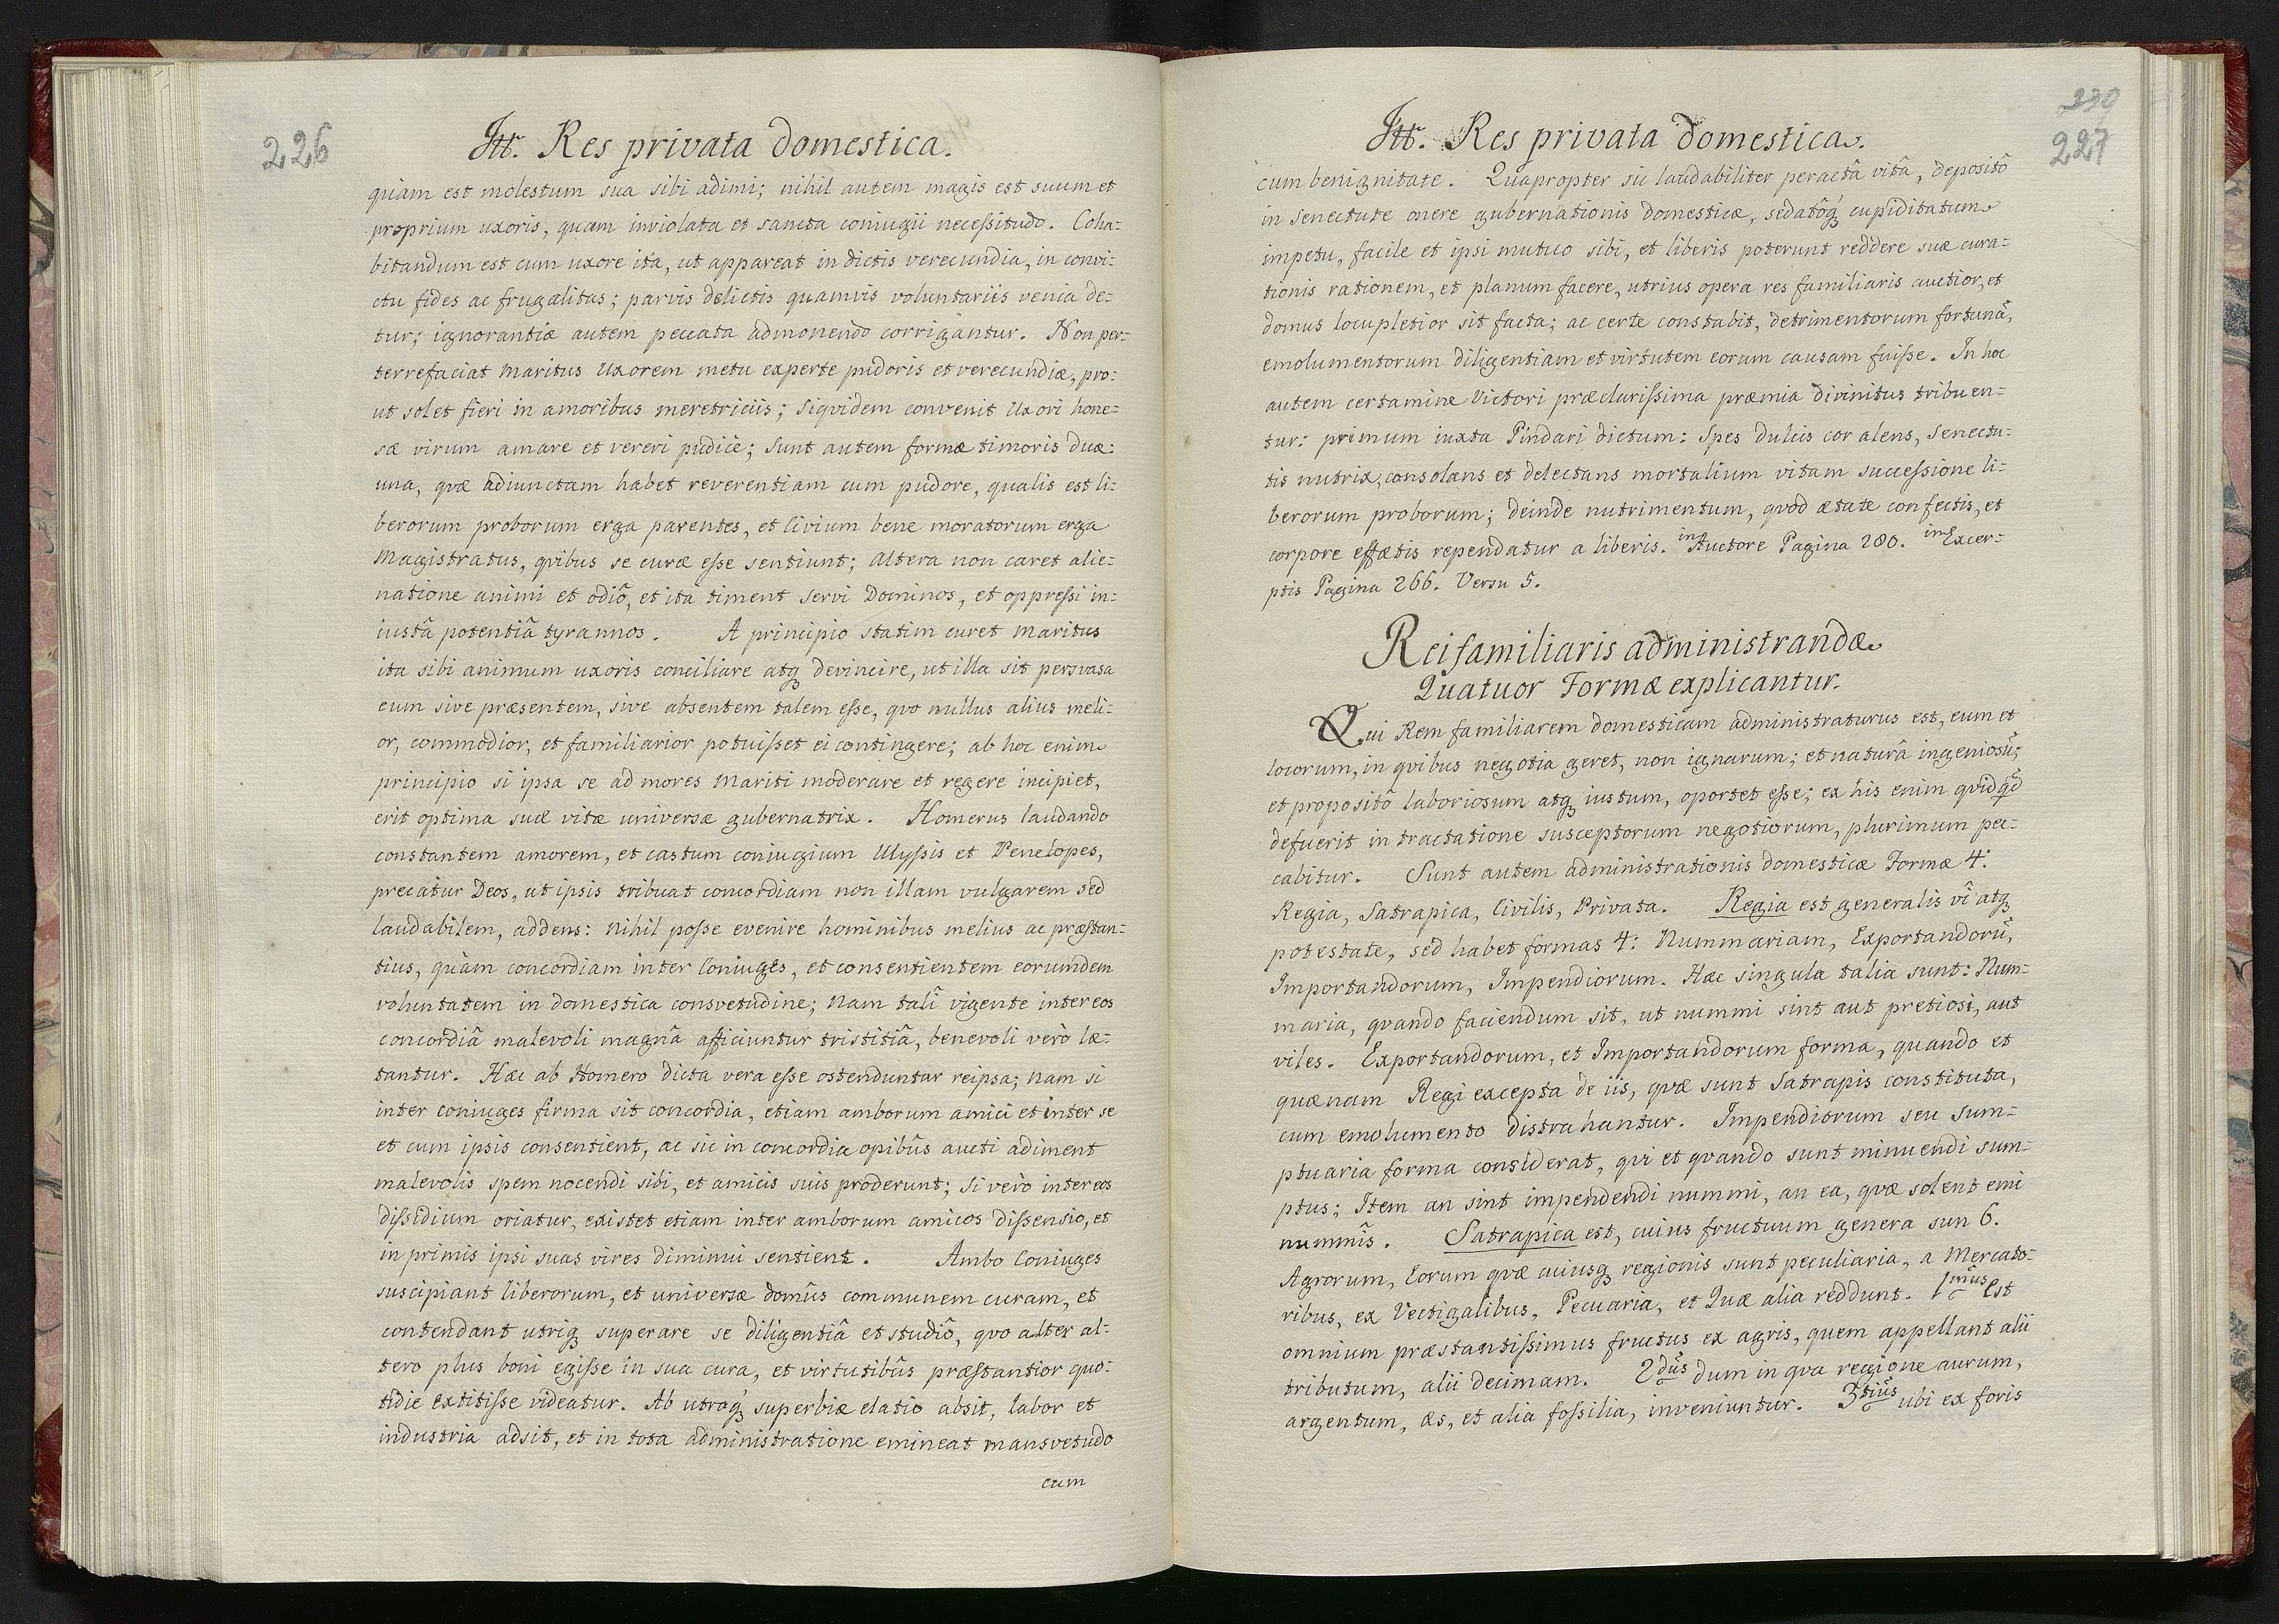 226
Itt. Res privata domestica.
quàm est molestum sua sibi adimi; nihil autem magis est suum et
proprium uxoris, quam inviolata et sancta coniugii necessitudo. Coha-
bitandum est cum uxore ita, ut appareat in dictis verecundia, in convi-
ctu fides ac frugalitas; parvis delictis quamvis voluntariis venia de-
tur; ignorantiæ autem peccata admonendo corrigantur. Non per-
terrefaciat Maritus Uxorem metu experte pudoris et verecundiæ, pro-
ut solet fieri in amoribus meretriciis; siqvidem convenit Uxori hone-
sæ virum amare et vereri pudicè; sunt autem formæ timoris duæ:
una, qvæ adiunctam habet reverentiam cum pudore, qualis est li-
berorum proborum erga parentes, et Civium bene moratorum erga
Magistratus, qvibus se curæ esse sentiunt; altera non caret alie-
natione animi et odiô, et ita timent servi Dominos, et oppressi in-
iustâ potentiâ tyrannos. A principio statim curet Maritus
ita sibi animum uxoris conciliare atq devincire, ut illa sit persvasa
eum sive præsentem, sive absentem talem esse, qvo nullus alius meli-
or, commodior, et familiarior potuisset ei contingere; ab hoc enim
principio si ipsa se ad mores Mariti moderare et regere incipiet,
erit optima suæ vitæ universæ gubernatrix. Homerus laudando
constantem amorem, et castum coniugium Ulyssis et Penelopes,
precatur Deos, ut ipsis tribuat concordiam non illam vulgarem sed
laudabilem, addens: nihil posse evenire hominibus melius ac præstan-
tius, quàm concordiam inter Coniuges, et consentientem eorumdem
voluntatem in domestica consvetudine; nam talî vigente inter eos
concordiâ malevoli magnâ afficiuntur tristitiâ, benevoli verò læ-
tantur. Hæc ab Homero dicta vera esse ostenduntur reipsa; nam si
inter coniuges firma sit concordia, etiam amborum amici et inter se
et cum ipsis consentient, ac sic in concordia opibûs aucti adiment
malevolis spem nocendi sibi, et amicis suis proderunt; si verò inter eos
dissidium oriatur, existet etiam inter amborum amicos dissensio, et
in primis ipsi suas vires diminui sentient. Ambo Coniuges
suscipiant liberorum, et universæ domûs communem curam, et
contendant utriq superare se diligentiâ et studiô, qvo alter al-
tero plus boni egisse in sua cura, et virtutibûs præstantior quo-
tidie extitisse videatur. Ab utraq superbiæ elatio absit, labor et
industria adsit, et in tota administratione emineat mansvetudo
cum
230
227
Itt. Res privata domestica.
cum benignitate. Quapropter sic laudabiliter peractâ vitâ, depositô
in senectute onere gubernationis domesticæ, sedatôq cupiditatum
impetu, facile et ipsi mutuo sibi, et liberis poterunt reddere suæ cura-
tionis rationem, et planum facere, utrius opera res familiaris auctior, et
domus locupletior sit facta; ac certe constabit, detrimentorum fortunã,
emolumentorum diligentiam et virtutem eorum causam fuisse. In hoc
autem certamine Victori præclarissima præmia divinitus tribuen-
tur: primum iuxta Pindari dictum: Spes dulcis cor alens, senectu-
tis nutrix, consolans et delectans mortalium vitam successione li-
berorum proborum; deinde nutrimentum, qvod ætate confectis, et
corpore effœtis rependatur a liberis. in Auctore Pagina 280. in Excer-
ptis Pagina 266. Versu 5.
Rei familiaris administrandæ
Quatuor Formæ explicantur.
Qui Rem familiarem domesticam administraturus est, eum et
locorum, in qvibus negotia geret, non ignarum; et naturâ ingeniosũ;
et propositô laboriosum atq iustum, oportet esse; ex his enim qvidqd
defuerit in tractatione susceptorum negotiorum, plurimum pec-
cabitur. Sunt autem administrationis domesticæ Formæ 4:
Regia, Satrapica, Civilis, Privata. Regia est generalis vî atq
potestate, sed habet formas 4: Nummariam, Exportandorũ,
Importandorum, Impendiorum. Hæc singula talia sunt: Num-
maria, qvando faciendum sit, ut nummi sint aut pretiosi, aut
viles. Exportandorum, et Importandorum forma, quando et
quænam Regi excepta de iis, qvæ sunt Satrapis constituta,
cum emolumento distrahantur. Impendiorum seu sum-
ptuaria forma considerat, qvi et qvando sunt minuendi sum-
ptus; Item an sint impendendi nummi, an ea, qvæ solent emi
nummîs. Satrapica est, cuius fructuum genera sun 6.
Agrorum, Eorum qvæ cuiusq regionis sunt peculiaria, a Mercato-
ribus, ex Vectigalibus, Pecuaria, et Quæ alia reddunt. 1mus Est
omnium præstantissimus fructus ex agris, quem appellant alii
tributum, alii decimam. 2dus dum in qva regione aurum,
argentum, æs, et alia fossilia, inveniuntur. 3tius ubi ex foris